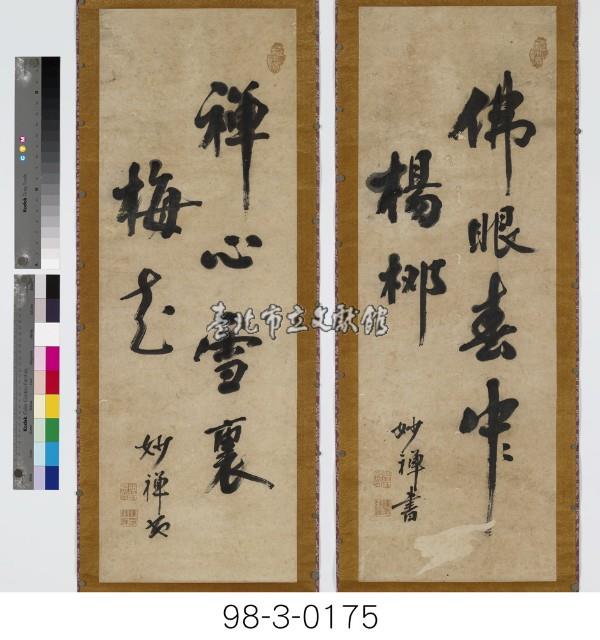 佛眼春中
楊柳
妙禪書
禪心雪裏
梅花
妙禪
臺北市立文獻館
98-3-0175